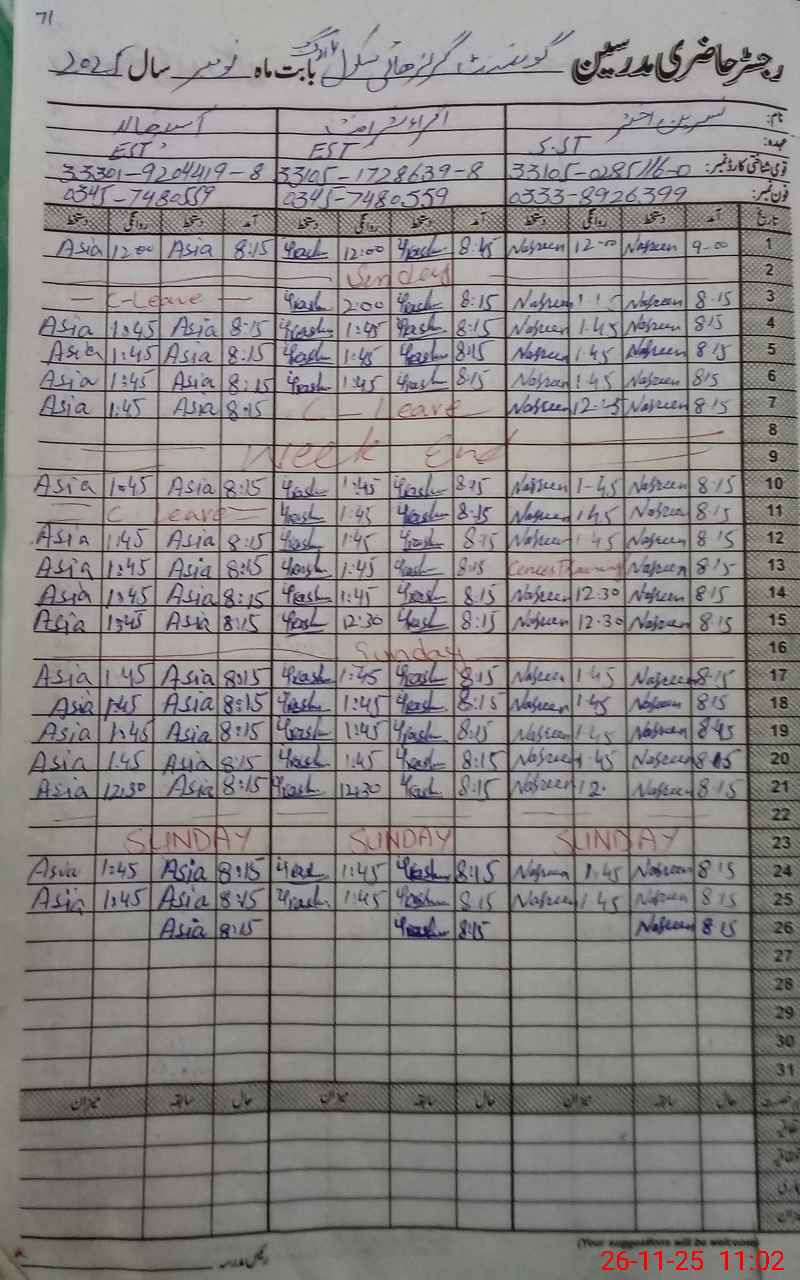 71
رجسٹر حاضری مدرسین گورنمنٹ گرلز ہائی سکول بابت ماہ نومبر سال 2025
نام: نسرین اختر
عہدہ: S.ST EST EST
قومی شناختی کارڈ نمبر: 33105-0285116-0 33105-1728639-8 33301-9204419-8
فون نمبر: 0333-8926399 0345-7480559 0345-7480559
تاریخ آمد دستخط روانگی دستخط آمد دستخط روانگی دستخط آمد دستخط روانگی دستخط
Asia 12:00 Asia 8:15 12:00 8:15 Nasreen 12-00 Nasreen 9-00 1
Sunday 2
C-Leave 2:00 8:15 Nasreen Nasreen 8:15 3
Asia 1:45 Asia 8:15 1:45 8:15 Nasreen 1.45 Nasreen 8:15 4
Asia 1:45 Asia 8:15 1:45 8:15 Nasreen 1.45 Nasreen 8:15 5
Asia 1:45 Asia 8:15 1:45 8:15 Nasreen 1.45 Nasreen 8:15 6
Asia 1:45 Asia 8:15 C-Leave Nasreen Nasreen 8:15 7
8
Week End 9
Asia 1:45 Asia 8:15 1:45 8:15 Nasreen 1-45 Nasreen 8:15 10
C Leave 1:45 8:15 Nasreen 1.45 Nasreen 8:15 11
Asia 1:45 Asia 8:15 1:45 8:15 Nasreen 1.45 Nasreen 8:15 12
Asia 1:45 Asia 8:15 1:45 8:15 Training Nasreen 8:15 13
Asia 1:45 Asia 8:15 1:45 8:15 Nasreen 12.30 Nasreen 8:15 14
Asia 1:45 Asia 8:15 12:30 8:15 Nasreen 12.30 Nasreen 8:15 15
Sunday 16
Asia 1:45 Asia 8:15 1:45 8:15 Nasreen 1.45 Nasreen 8:15 17
Asia 1:45 Asia 8:15 1:45 8:15 Nasreen 1.45 Nasreen 8:15 18
Asia 1:45 Asia 8:15 1:45 8:15 Nasreen 1.45 Nasreen 8:15 19
Asia 1:45 Asia 8:15 1:45 8:15 Nasreen 1.45 Nasreen 8:15 20
Asia 12:30 Asia 8:15 12:30 8:15 Nasreen 12. Nasreen 8:15 21
22
SUNDAY SUNDAY SUNDAY 23
Asia 1:45 Asia 8:15 1:45 8:15 Nasreen 1.45 Nasreen 8:15 24
Asia 1:45 Asia 8:15 1:45 8:15 Nasreen 1.45 Nasreen 8:15 25
Asia 8:15 8:15 Nasreen 8:15 26
27
28
29
30
31
حال سابقہ میزان حال سابقہ میزان حال سابقہ میزان
میزان
(Your suggestions will be welcome)
26-11-25 11:02